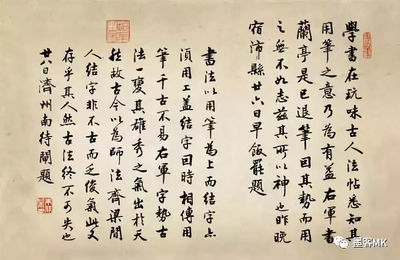 學書在玩味古人法帖悉知其
用筆之意乃為有益右軍書
蘭亭是已退筆因其勢而用
之無不如志茲其所以神也昨晚
宿沛縣廿六日早飯罷題
書法以用筆為上而結字亦
須用工蓋結字因時相傳用
筆千古不易右軍字勢古
法一變其雄秀之氣出於天
然故古今以為師法齊梁間
人結字非不古而乏俊氣此又
存乎其人然古法終不可失也
廿八日濟州南待閘題
墨客MK